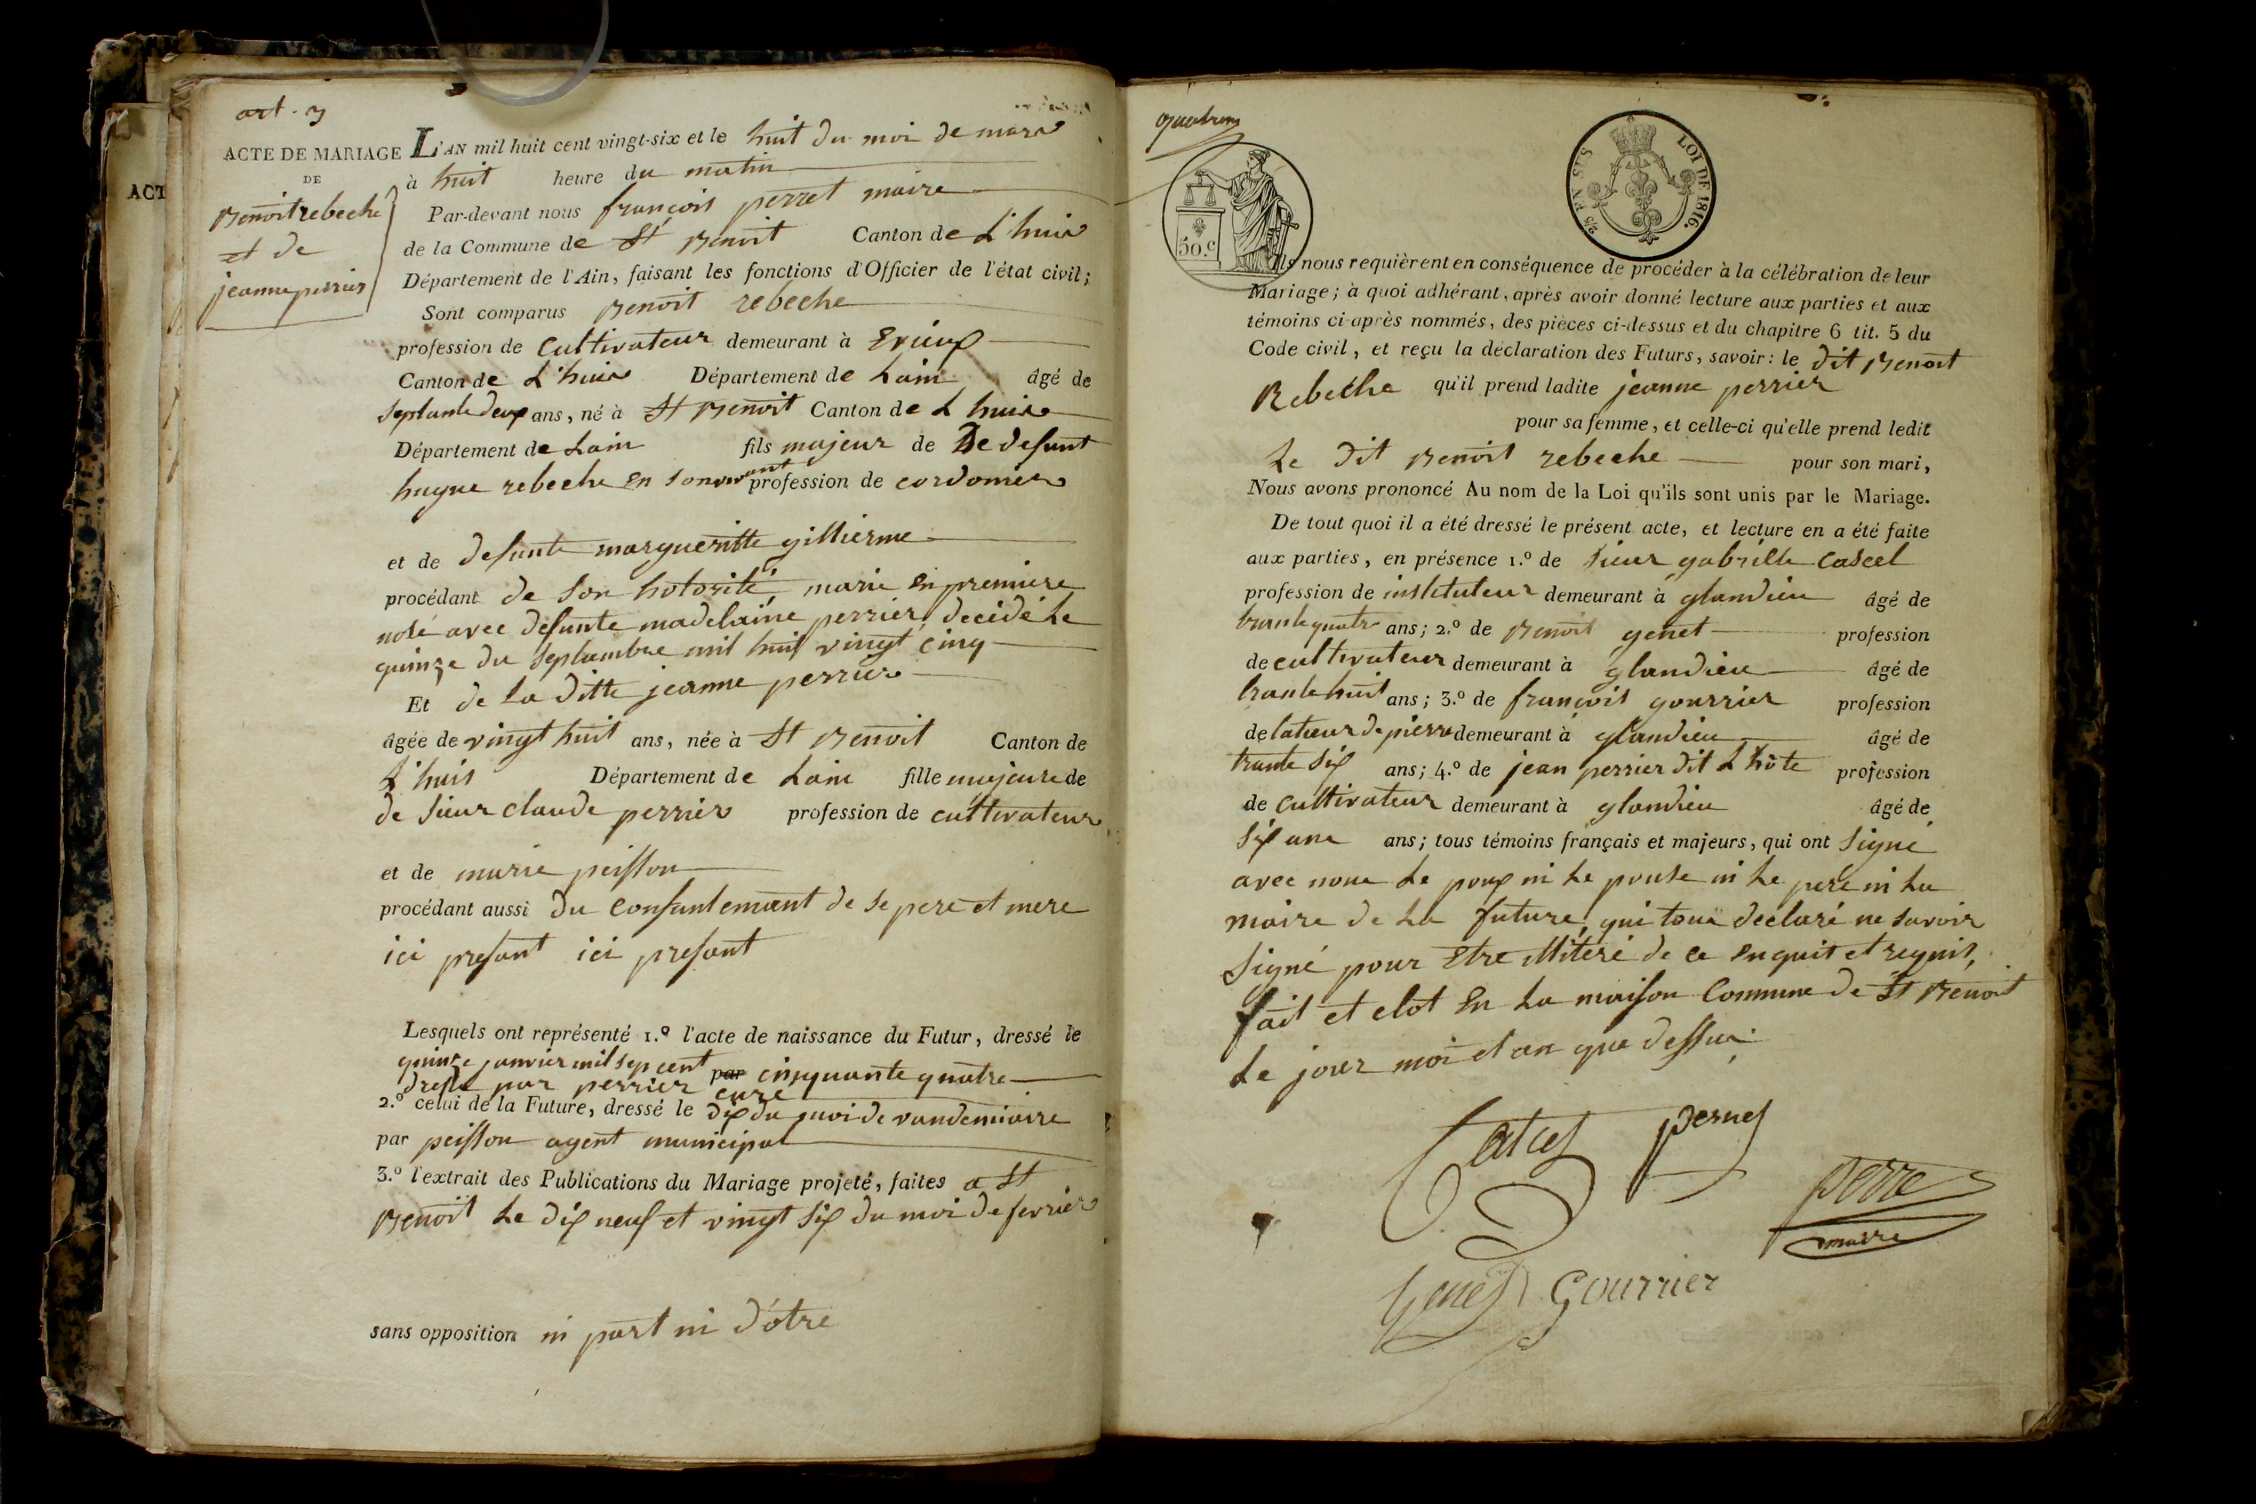 art. 3
ACTE DE MARIAGE
DE
Benoit rebeche
et de
jeanne perrier
ACT
L'AN mil huit cent vingt-six et le huit du moi de mars
à huit heure du matin
Par-devant nous françois perret maire
de la Commune de St Benoit Canton de L'huis
Département de l'Ain, faisant les fonctions d'Officier de l'état civil;
Sont comparus Benoit rebeche
profession de Cultivateur demeurant à Evieux
Canton de L'huis Département de Lain âgé de
septante deux ans, né à St Benoit Canton de L huis
Département de Lain fils majeur de De defunt
hugue rebeche en son vivant profession de cordonier
et de defunte margueritte gillierme
procédant de son hotorité, marié en premiere
nosé avec defunte madelaine perrier decédé le
quinze du septambre mil huit vingt cinq
Et de La ditte jeanne perrier
âgée de vingt huit ans, née à St Benoit Canton de
L'huis Département de Lain fille majeure de
de sieur claude perrier profession de cultivateur
et de marie peisson
procédant aussi du Consantemant de se pere et mere
ici presant ici presant
Lesquels ont représenté 1.º l'acte de naissance du Futur, dressé le
quinze janvier mil sep cent par cinquante quatre
dressé par perrier curé
2.º celui de la Future, dressé le dix du moi de vandemiaire
par peisson agent municipal
3.º l'extrait des Publications du Mariage projeté, faites a St
Benoit Le dix neuf et vingt six du moi de fevrier
sans opposition ni part ni d'otre
50.c
2.s EN SUS
LOI DE 1816.
Ils nous requièrent en conséquence de procéder à la célébration de leur
Mariage; à quoi adhérant, après avoir donné lecture aux parties et aux
témoins ci-après nommés, des pièces ci-dessus et du chapitre 6 tit. 5 du
Code civil, et reçu la déclaration des Futurs, savoir: le dit Benoit
Rebeche qu'il prend ladite jeanne perrier
pour sa femme, et celle-ci qu'elle prend ledit
Le Dit Benoit rebeche pour son mari,
Nous avons prononcé Au nom de la Loi qu'ils sont unis par le Mariage.
De tout quoi il a été dressé le présent acte, et lecture en a été faite
aux parties, en présence 1.º de sieur gabrielle
profession de instituteur demeurant à glandieu âgé de
trante quatre ans; 2.º de Benoit genet profession
de cultivateur demeurant à glandieu âgé de
trante huit ans; 3.º de françois gourrier profession
de tateur de pierre demeurant à glandieu âgé de
trante six ans; 4.º de jean perrier dit L'hôte profession
de Cultivateur demeurant à glandieu âgé de
ans; tous témoins français et majeurs, qui ont signé
avec nous Le poux ni Le pouse ni Le pere ni La
maire de La future, qui tous declaré ne savoir
signé pour Etre illitéré de ce enquit et requis,
fait et clot En La maison Commune de St Benoit
Le jour moi et an que dessus
perret
maire
Genet Gourrier